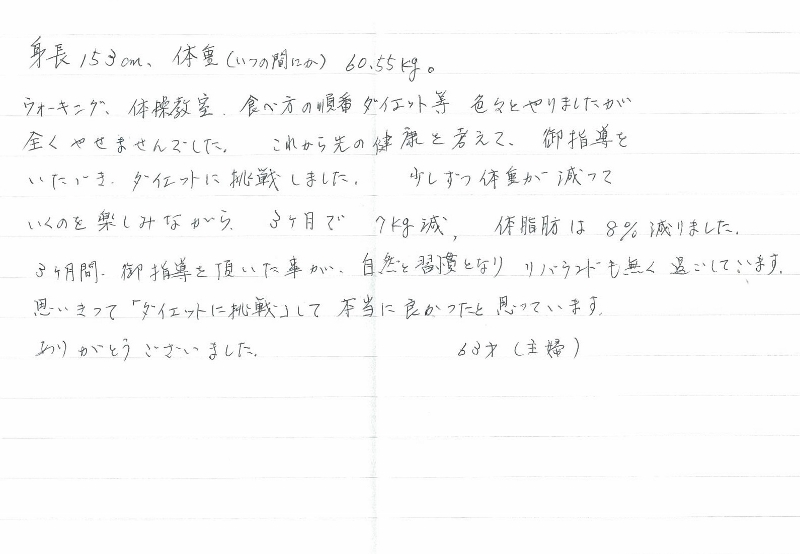 身長153cm、体重(いつの間にか) 60.55kg。
ウォーキング、体操教室、食べ方の順番ダイエット等 色々とやりましたが
全くやせませんでした。 これから先の健康を考えて、御指導を
いただき、ダイエットに挑戦しました。 少しずつ体重が減って
いくのを楽しみながら 3ヶ月で 7kg減, 体脂肪は8%減りました。
3ヶ月間、御指導を頂いた事が、自然と習慣となり リバウンドも無く過ごしています。
思いきって「ダイエットに挑戦」して本当に良かったと思っています。
ありがとうございました。 63才(主婦)